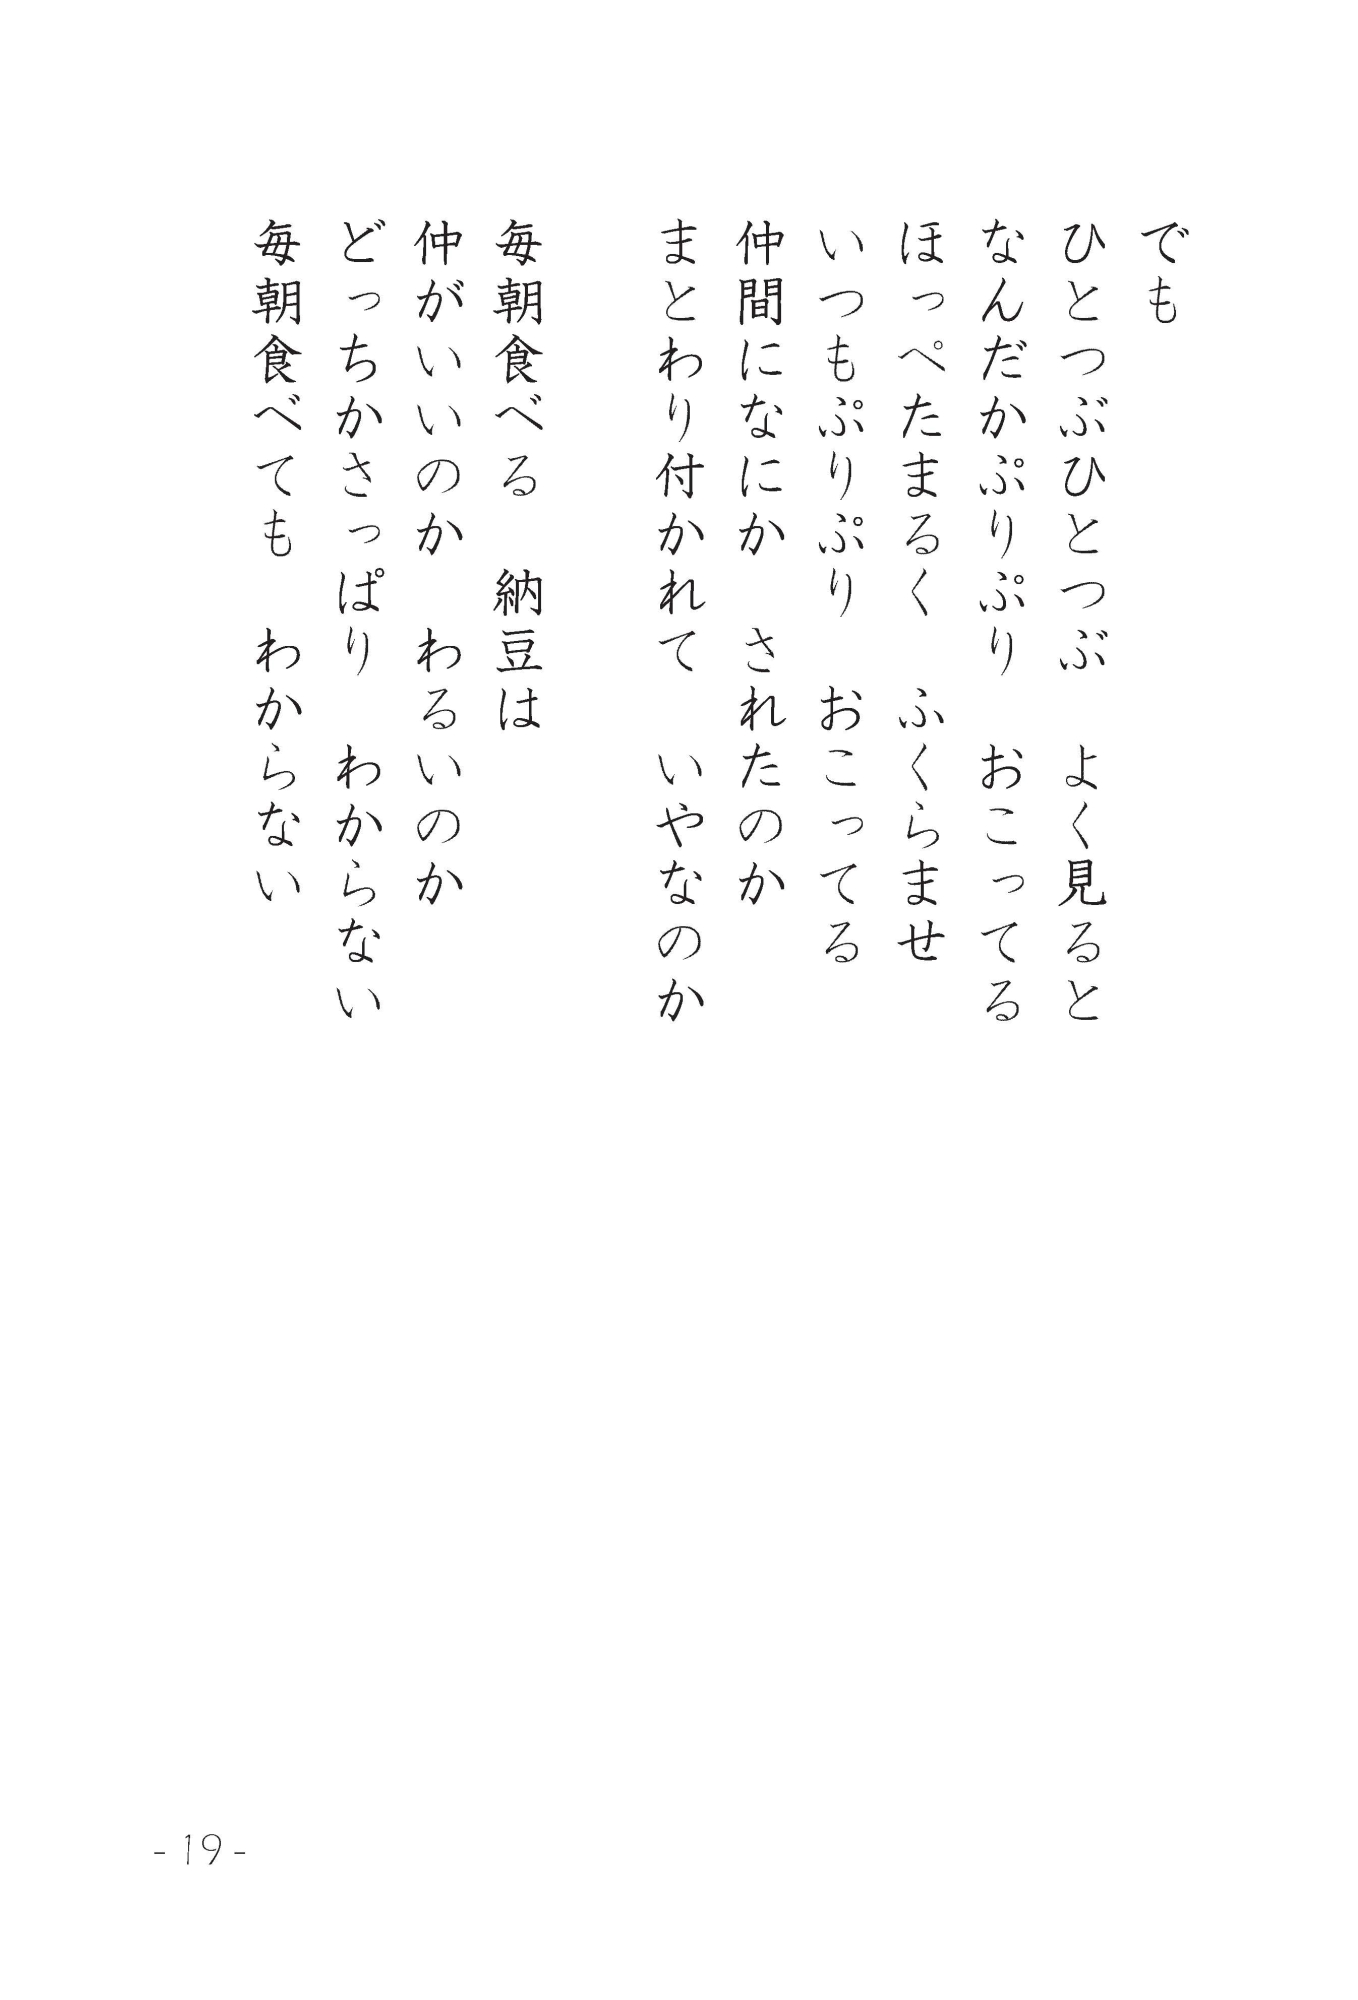 でも
ひとつぶひとつぶ　よく見ると
なんだかぷりぷり　おこってる
ほっぺたまるく　ふくらませ
いつもぷりぷり　おこってる
仲間になにか　されたのか
まとわり付かれて　いやなのか

毎朝食べる　納豆は
仲がいいのか　わるいのか
どっちかさっぱり　わからない
毎朝食べても　わからない
- 19 -